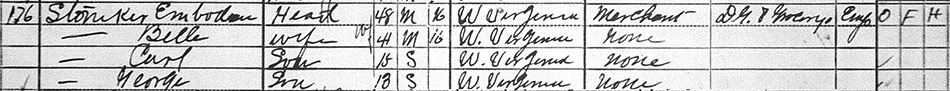 176 Stoneker Embodan Head 48 M 16 W. Virginia Merchant D.G. & Grocery Emp O F H
— Belle wife W 41 M 16 W. Virginia none
— Carl Son 15 S W. Virginia none
— George Son 13 S W. Virginia none